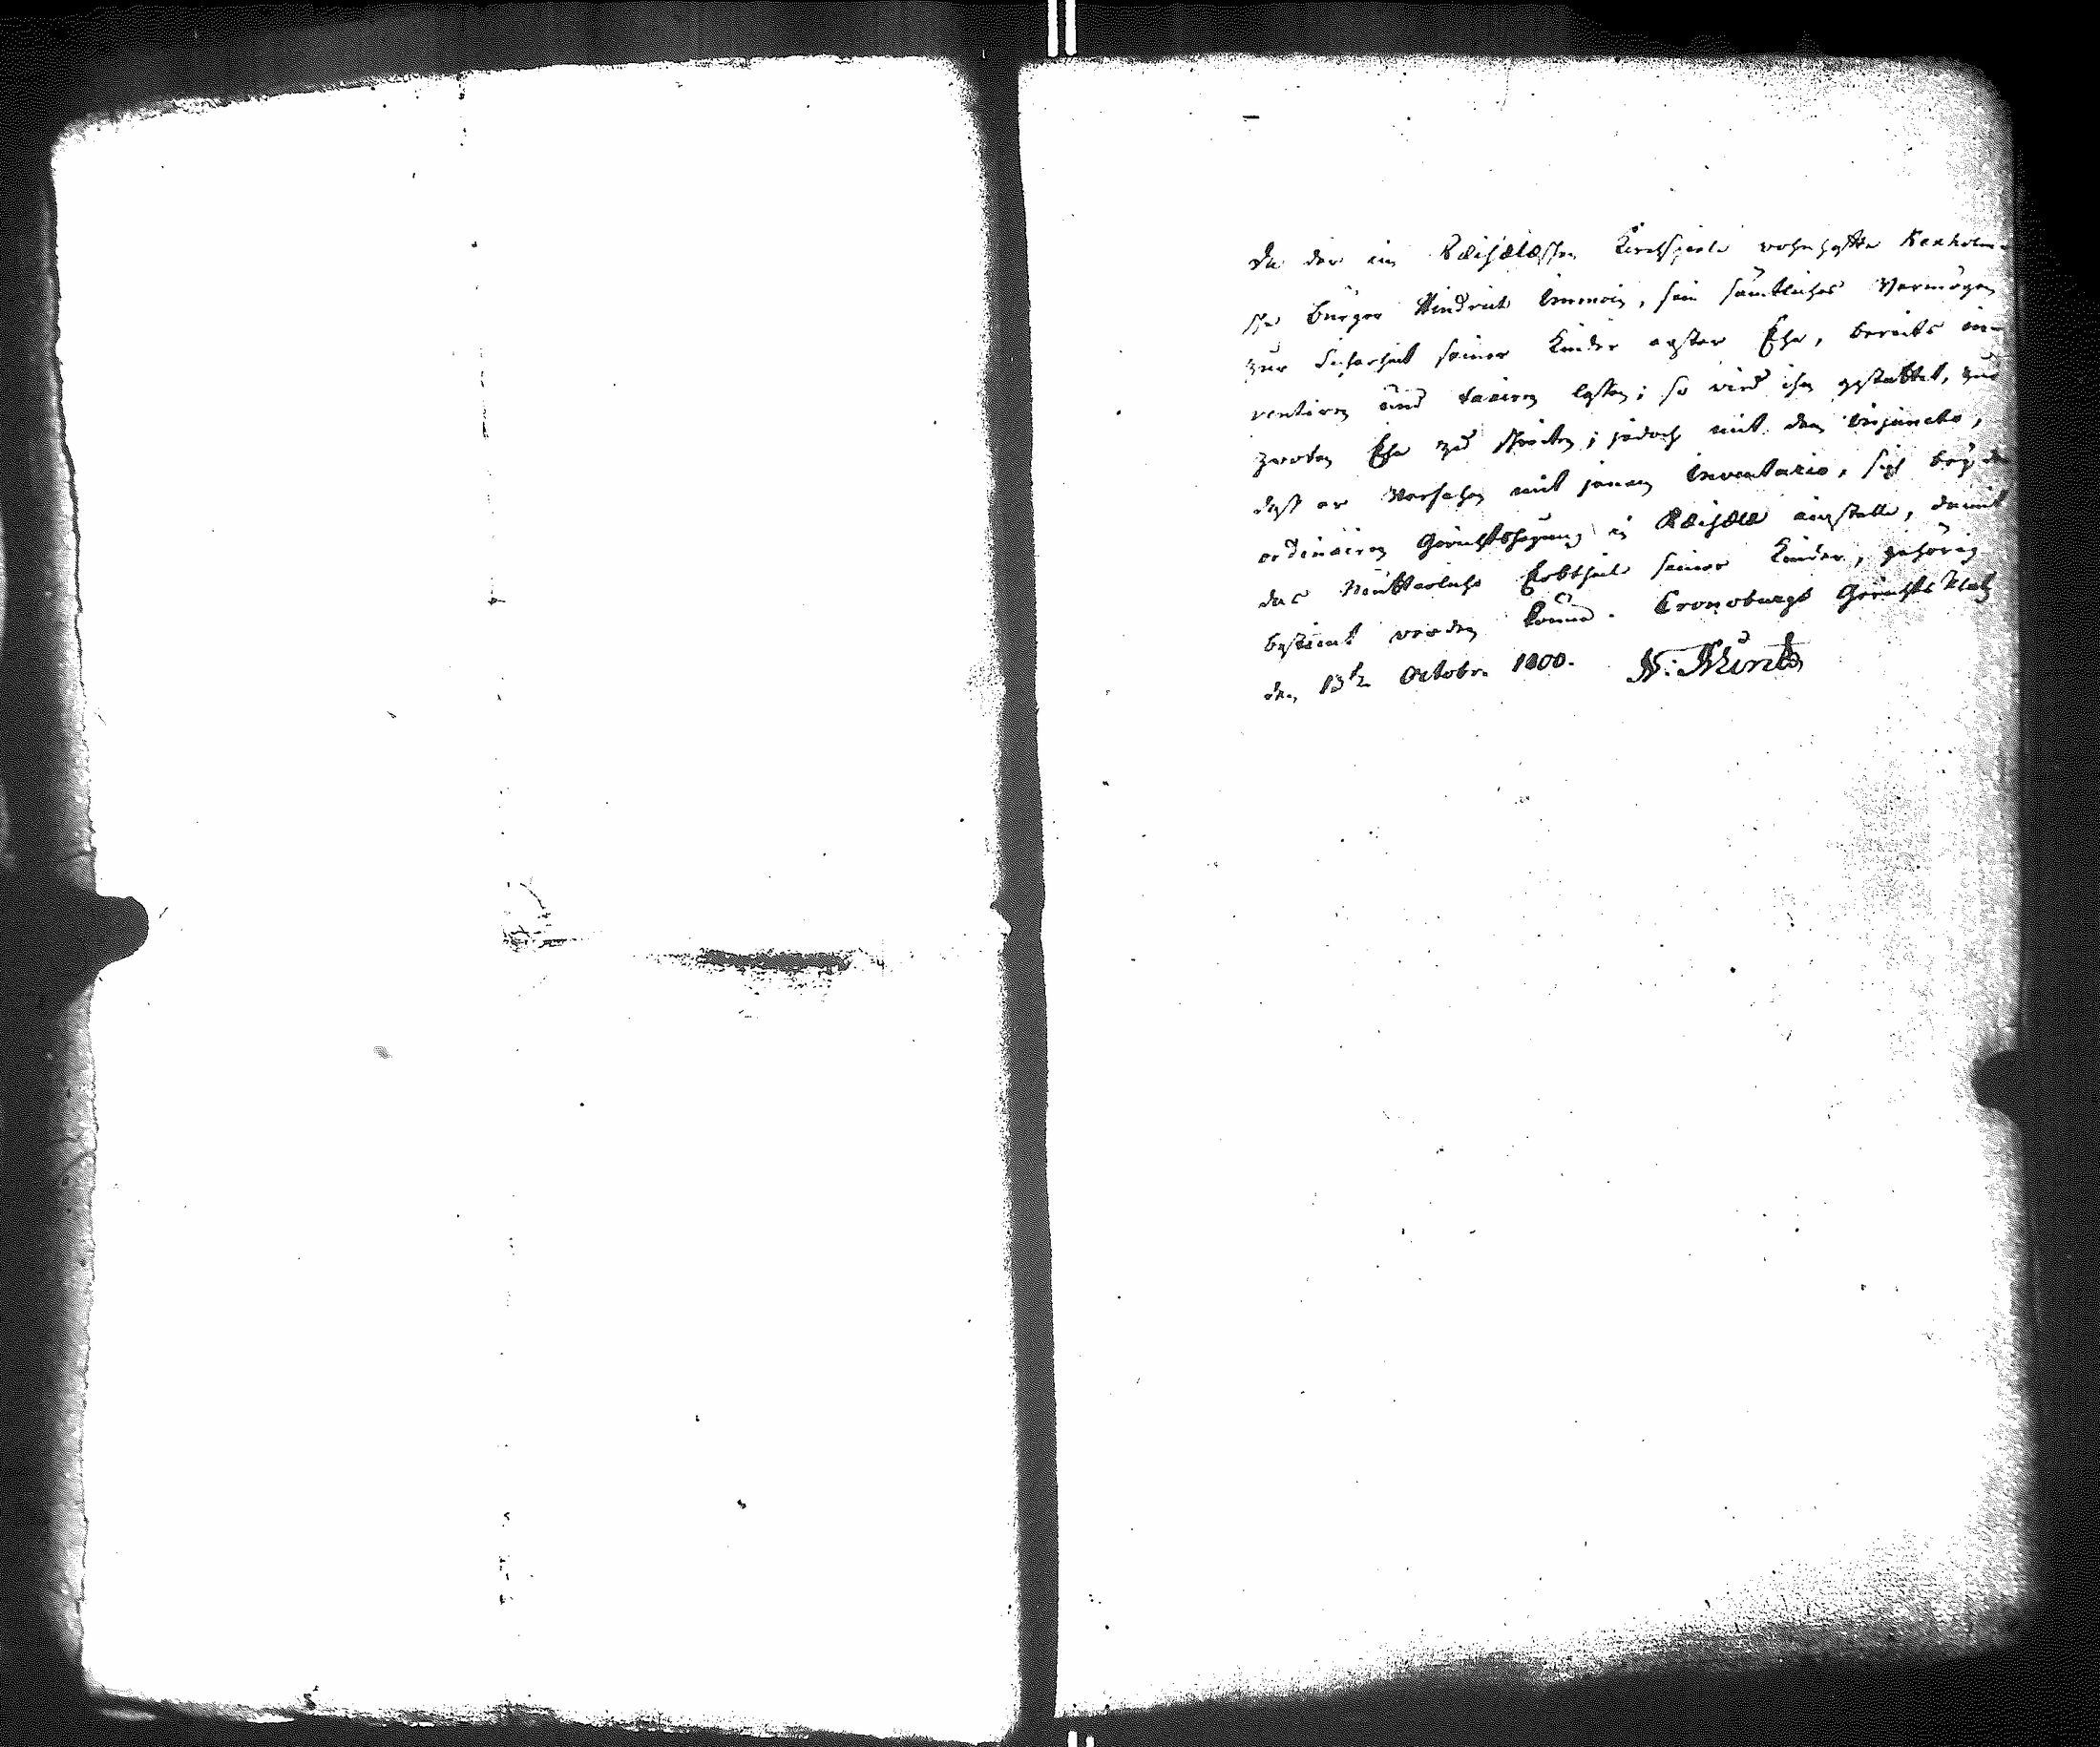 Da der im Räisäläschen Kirchspiele wohnhafte Kexholm-
sche Bürger Hindrich Immoin, sein sämtliches Vermögen
zur Sicherheit seiner Kinder erster Ehe, bereits in-
ventiren und taxiren lassen; so wird ihm gestattet, zur
zweiten Ehe zu schreiten; jedoch mit dem Injuncto,
daß er Versehen mit jenem Inventario, sich bey der
ordinairen Gerichtshegung in Räisälä einstelle, damit
das Mütterliche Erbtheil seiner Kinder, gehörig
bestimt werden könne. Cronoburgs Gerichts Platz
den 13te Octobr. 1800.